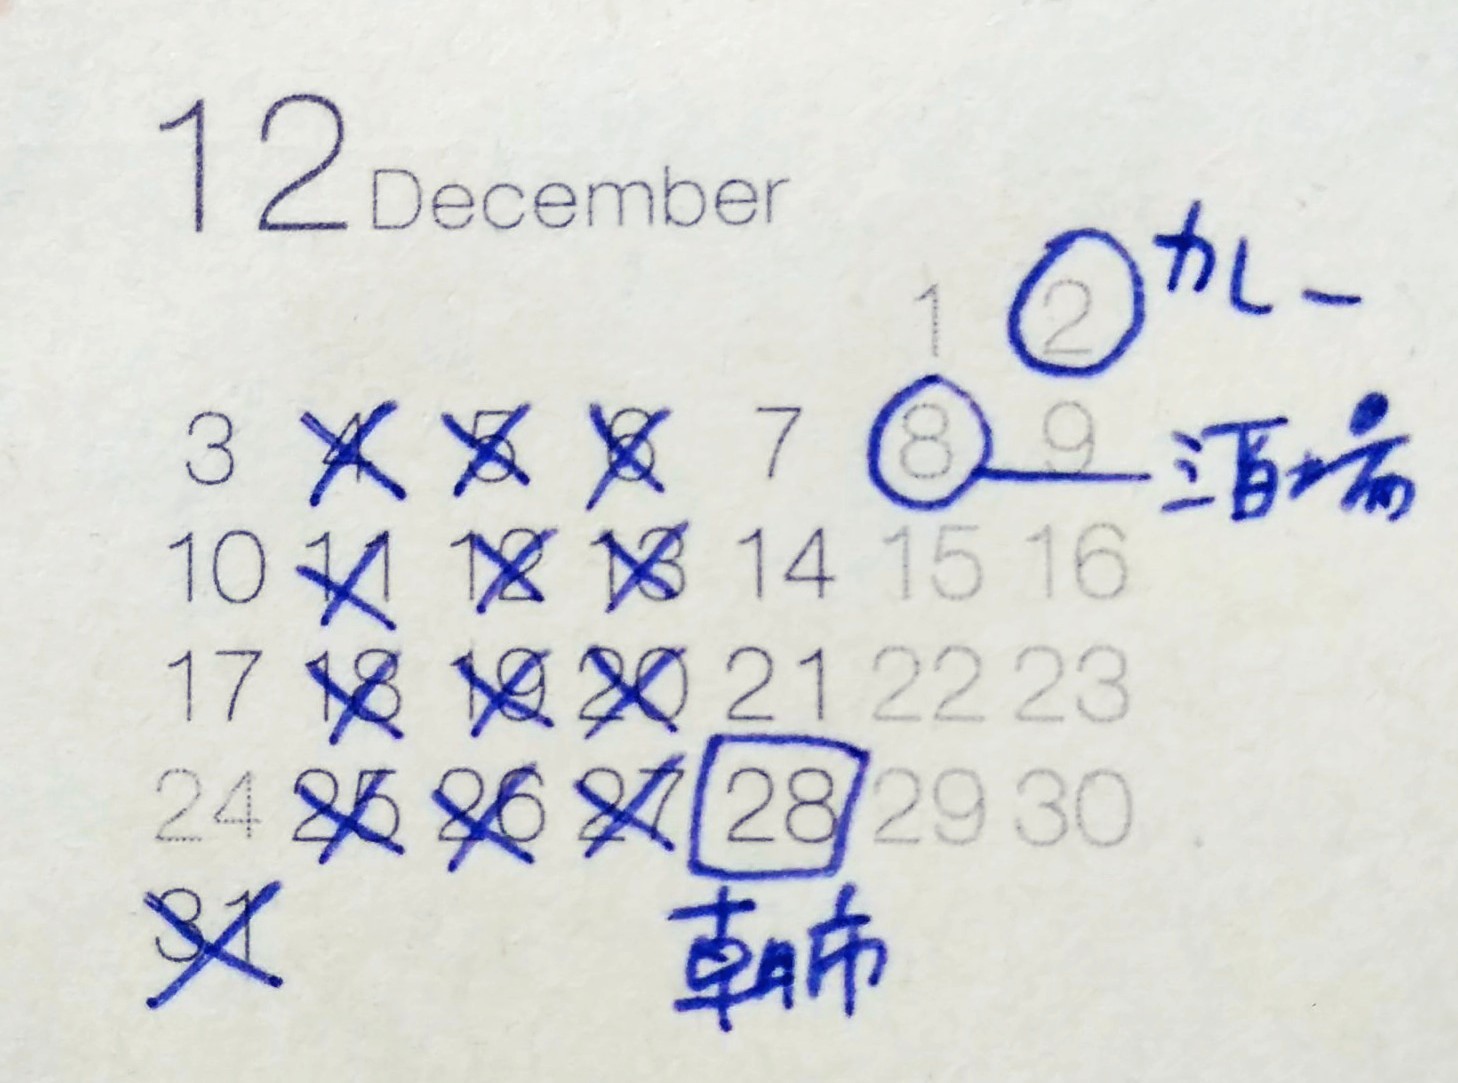 12 December
1 2 カレー
3 4 5 6 7 8 9 酒場
10 11 12 13 14 15 16
17 18 19 20 21 22 23
24 25 26 27 28 29 30
31
朝市